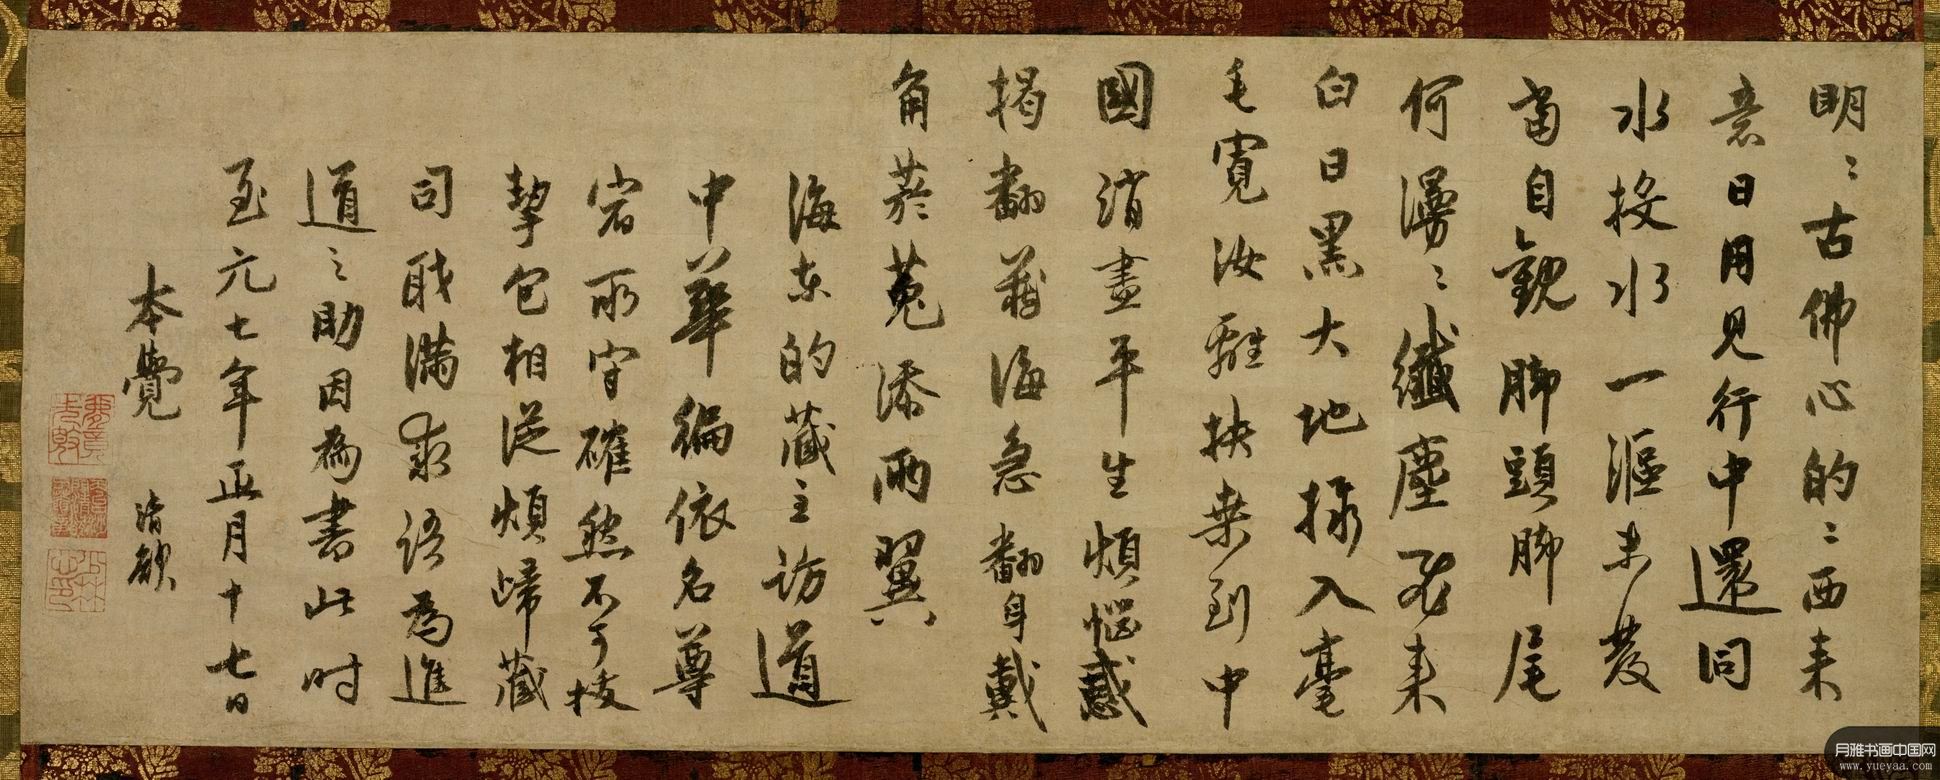 明〻古佛心的〻西来
意日用見行中還同
水投水一漚未發
當自觀脚頭脚尾
何漫〻纖塵飛来
白日黒大地採入毫
毛寬汝離扶桒到中
國消盡平生煩惱惑
掲翻蔵海急翻身戴
角菸菟添兩翼
海東的蔵主訪道
中華徧依名尊
宿所守確然不可拔
挈包相従煩歸蔵
司職滿求語為進
道之助因為書此时
至元七年正月十七日
本覺 清欲
月雅书画中国网
www.yueyaa.com